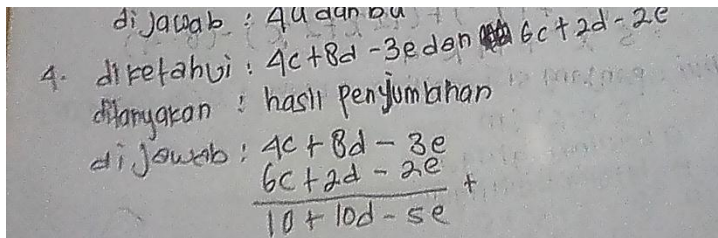 dijawab : 4a dan ba
4. diketahui : 4c+8d -3e dan 6c+2d-2e
ditanyakan : hasil penjumlahan
dijawab : 4c + 8d - 3e
6c+2d - 2e +
10 + 10d - 5e